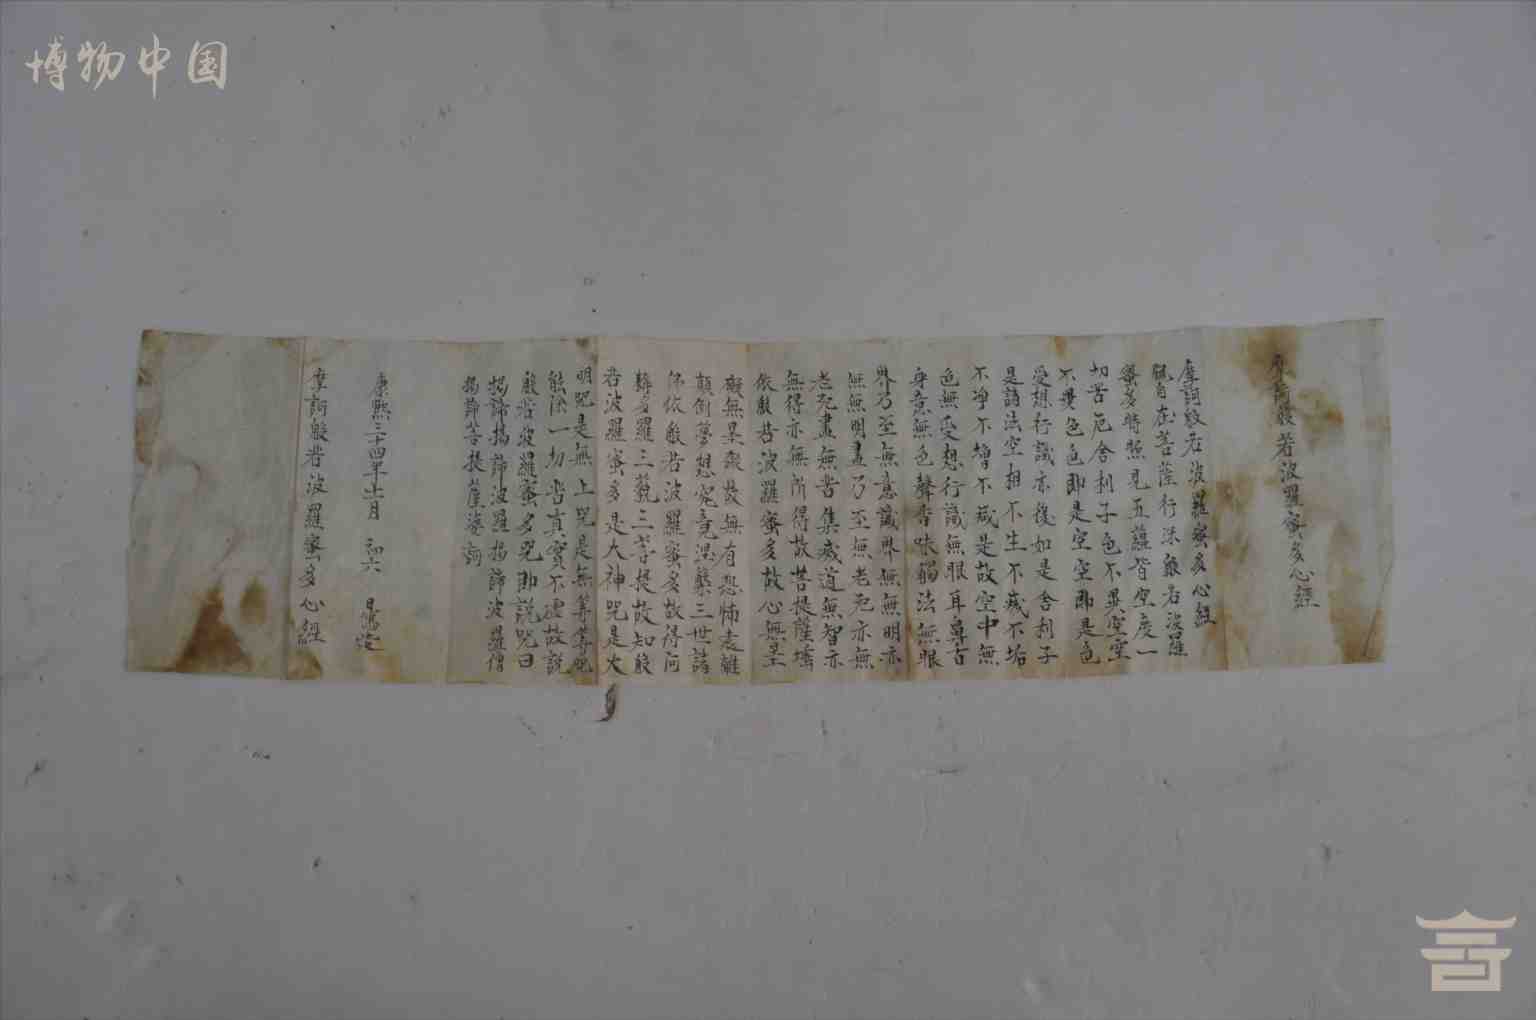 博物中国
摩訶般若波羅蜜多心經
摩訶般若波羅蜜多心經
觀自在菩薩行深般若波羅
蜜多時照見五蘊皆空度一
切苦厄舍利子色不異空空
不異色色即是空空即是色
受想行識亦復如是舍利子
是諸法空相不生不滅不垢
不淨不增不減是故空中無
色無受想行識無眼耳鼻舌
身意無色聲香味觸法無眼
界乃至無意識界無無明亦
無無明盡乃至無老死亦無
老死盡無苦集滅道無智亦
無得亦無所得故菩提薩埵
依般若波羅蜜多故心無罣
礙無罣礙故無有恐怖遠離
顛倒夢想究竟涅槃三世諸
佛依般若波羅蜜多故得阿
耨多羅三藐三菩提故知般
若波羅蜜多是大神咒是大
明咒是無上咒是無等等咒
能除一切苦真實不虛故說
般若波羅蜜多咒即說咒曰
揭諦揭諦波羅揭諦波羅僧
揭諦菩提薩婆訶
康熙三十四年 月 初六 日
摩訶般若波羅蜜多心經